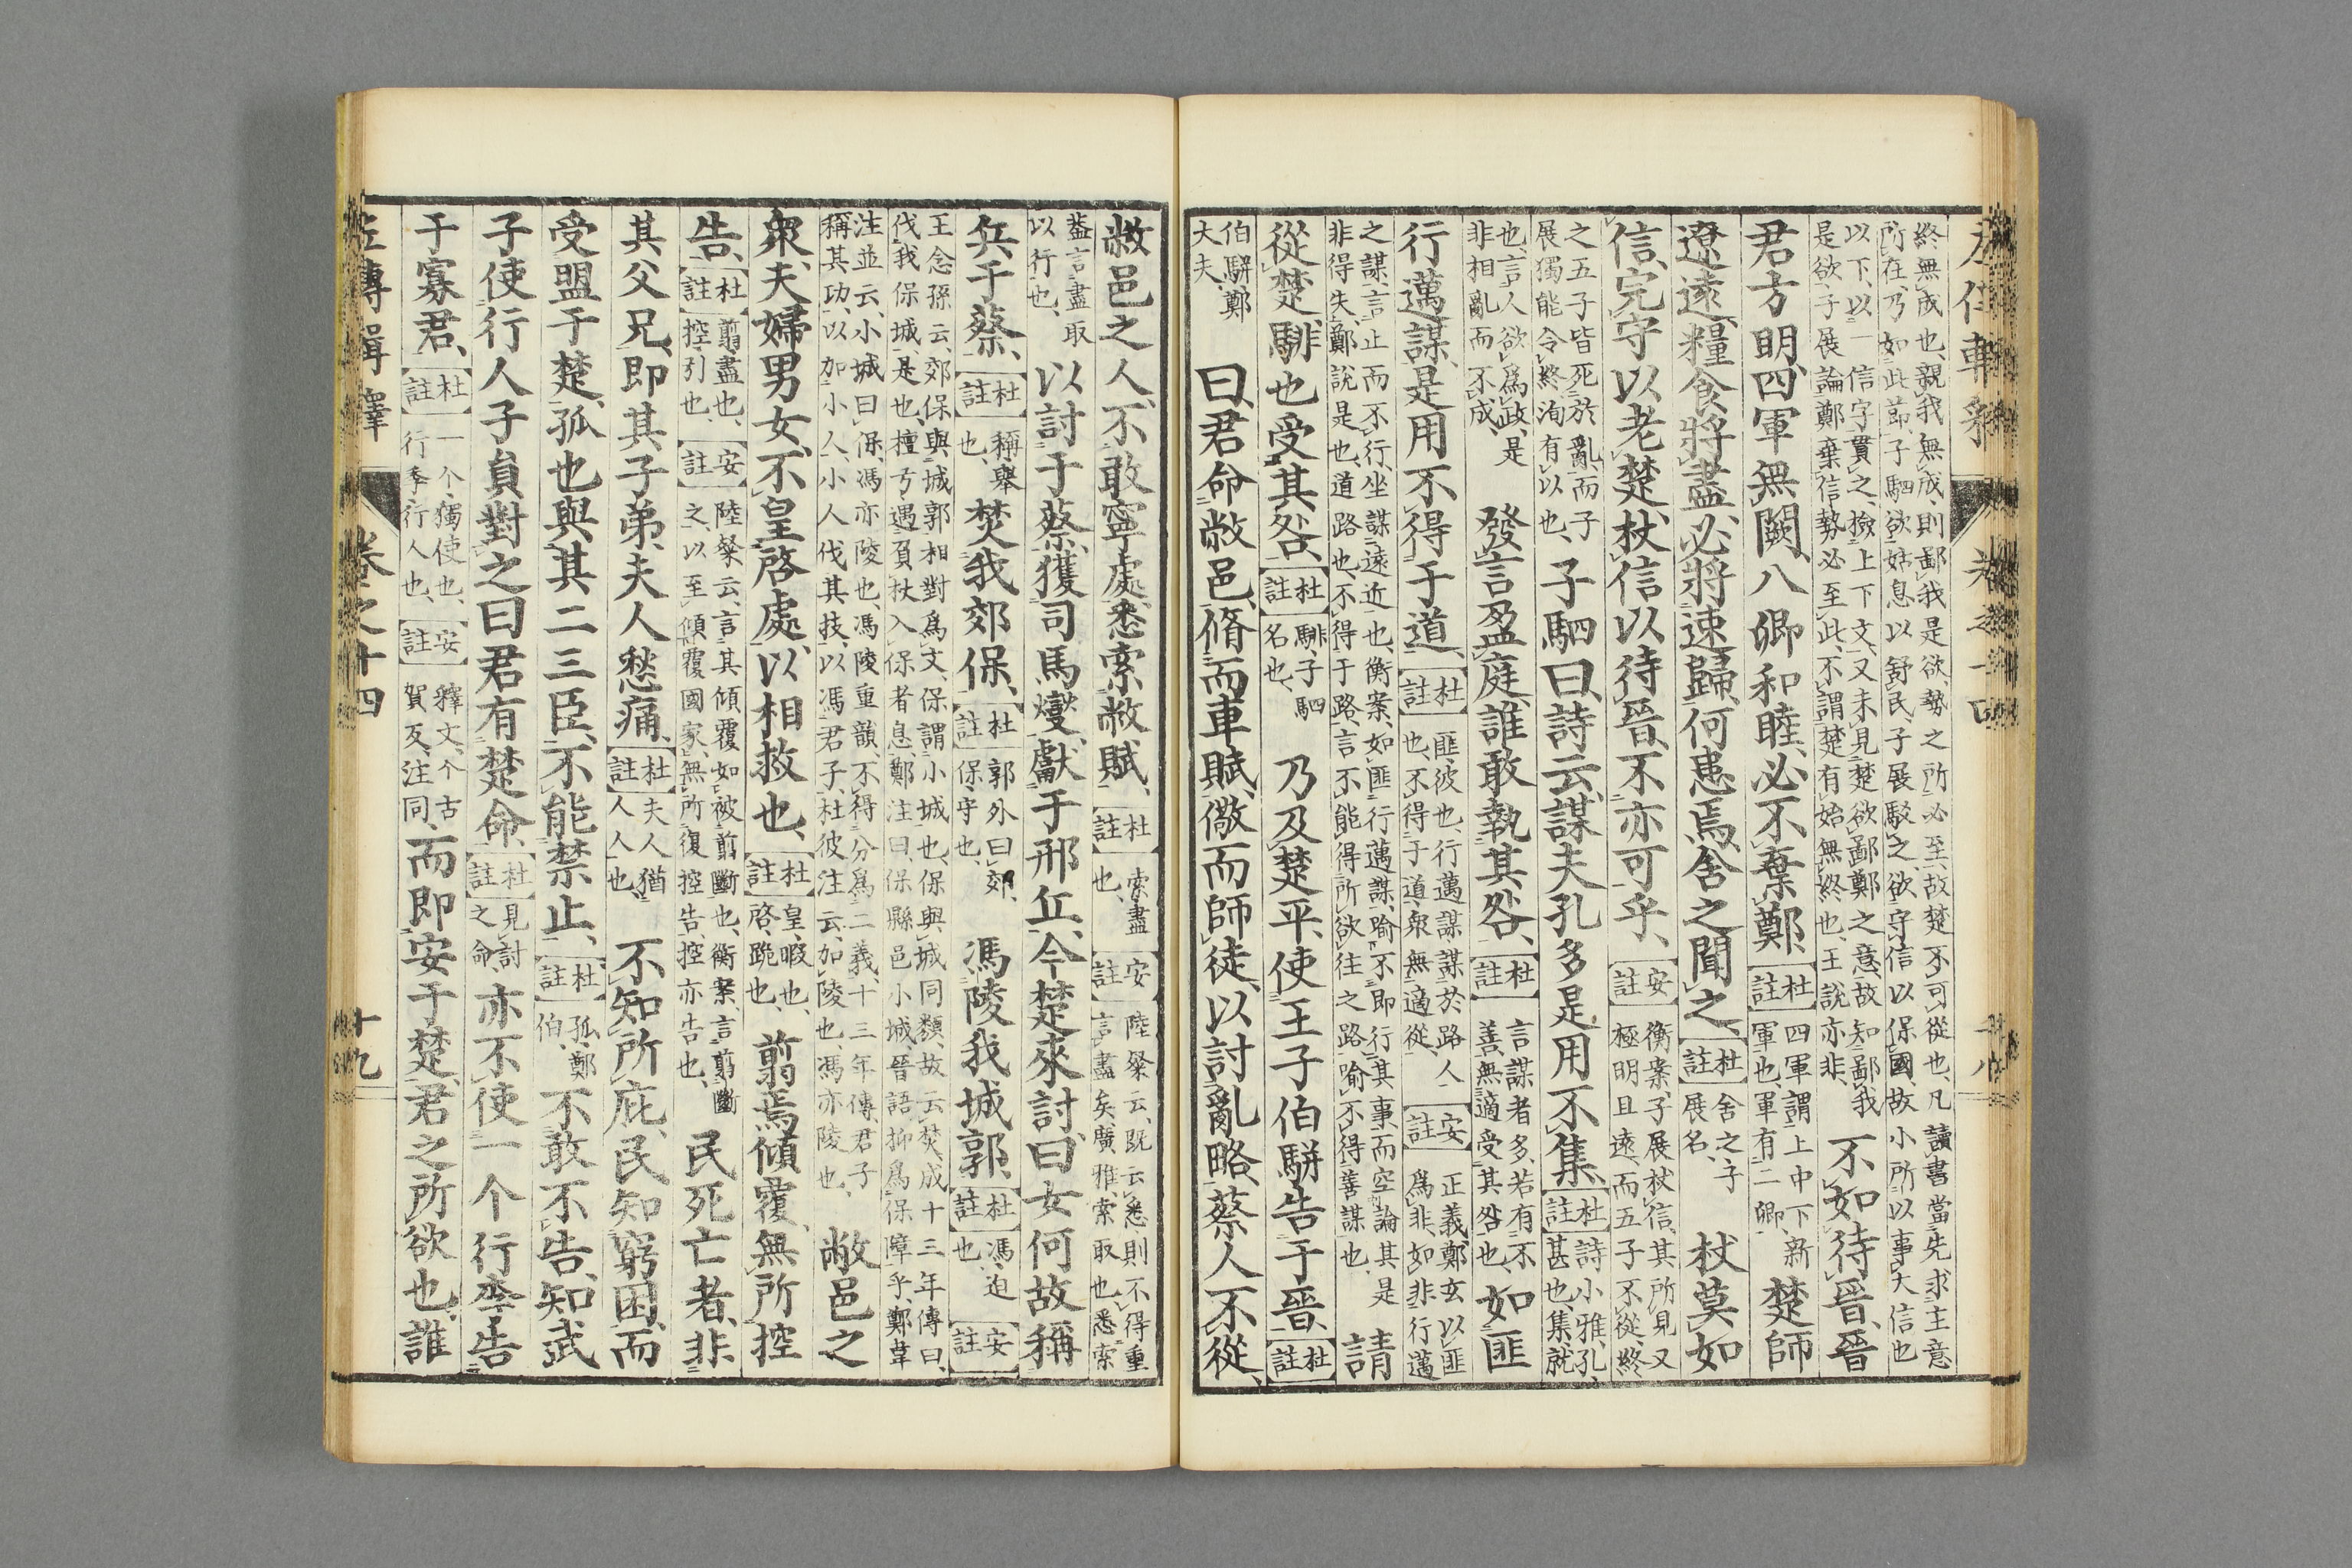 左傳輯釋 卷之十四 十八
終無成也、親我無成、則鄙我是欲、勢之所必至、故楚不可從也、凡讀書當先求主意
所在、乃如此節、子駟欲姑息以舒民、子展駁之、欲守信以保國、故小所以事大信也
以下、以一信字貫之、撿上下文、又未見楚欲鄙鄭之意、故知鄙我
是欲、子展論鄭棄信勢必至此、不謂楚有始無終也、王說亦非、
不如待晉、晉
君方明、四軍無闕、八卿和睦、必不棄鄭、杜註 四軍謂上中下新軍也、軍有二卿、楚師
遼遠、糧食將盡、必將速歸、何患焉、舍之聞之、杜註 舍之、子展名、杖莫如
信、完守以老楚、杖信以待晉、不亦可乎、安註 衡案、子展杖信、其所見又極明且遠、而五子不從、終
之五子皆死於亂、而子展獨能令終、洵有以也、子駟曰、詩云、謀夫孔多、是用不集、杜註 詩小雅、孔、甚也、集、就
也、言人欲爲政、是非相亂而不成、發言盈庭、誰敢執其咎、杜註 言謀者多、若有不善、無適受其咎也、如匪
行邁謀、是用不得于道、杜註 匪、彼也、行邁謀、謀於路人也、不得于道、衆無適從、安註 正義、鄭玄以匪爲非、如非行邁
之謀、言止而不行、坐謀遠近也、衡案、如匪行邁謀、喻不即行其事、而空論其是
非得失、鄭說是也、道路也、不得于路、言不能得所欲往之路、喻不得善謀也、
請
從楚、騑也受其咎、杜註 騑、子駟名也、乃及楚平、使王子伯騈告于晉、杜註
伯騈、鄭大夫、曰、君命敝邑、脩而車賦、儆而師徒、以討亂略、蔡人不從、
敝邑之人、不敢寧處、悉索敝賦、杜註 索、盡也、安註 陸粲云、旣云悉、則不得重言盡矣、廣雅、索取也、悉索
蓋言盡取以行也、以討于蔡、獲司馬燮、獻于邢丘、今楚來討曰、女何故稱
兵于蔡、杜註 稱、舉也、焚我郊保、杜註 郭外曰郊、保、守也、馮陵我城郭、杜註 馮、迫也、安註
王念孫云、郊保與城郭相對爲文、保謂小城也、保與城同類、故云焚、成十三年傳曰、
伐我保城、是也、檀弓遇負杖入保者息、鄭注曰、保縣邑小城、晉語抑爲保障乎、鄭韋
注並云、小城曰保、馮亦陵也、馮陵重韻、不得分爲二義、十三年傳、君子
稱其功、以加小人、小人伐其技、以馮君子、杜彼注云、加、陵也、馮亦陵也、
敝邑之
衆、夫婦男女、不皇啓處、以相救也、杜註 皇、暇也、啓、跪也、翦焉傾覆、無所控
告、杜註 翦、盡也、控、引也、安註 陸粲云、言其傾覆如被翦斷也、衡案、言翦斷之、以至傾覆國家、無所復控告、控亦告也、民死亡者、非
其父兄、即其子弟、夫人愁痛、杜註 夫人猶人人也、不知所庇、民知窮困、而
受盟于楚、孤也與其二三臣、不能禁止、杜註 孤、鄭伯、不敢不告、知武
子使行人子員對之曰、君有楚命、杜註 見討之命、亦不使一个行李告
于寡君、杜註 一个、獨使也、行李、行人也、安註 釋文、个古賀反、注同、而即安于楚、君之所欲也、誰
左傳輯釋 卷之十四 十九